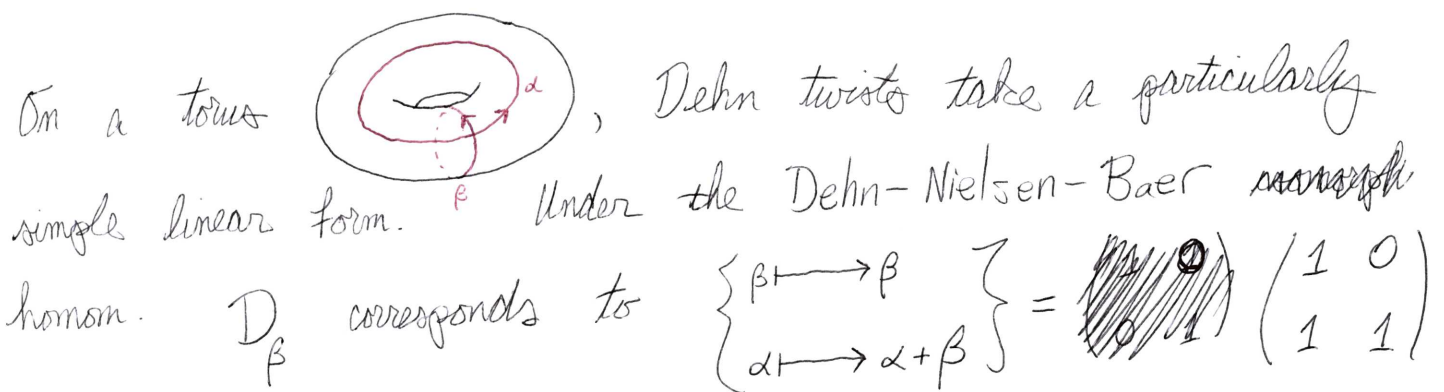 On a torus α β , Dehn twists take a particularly
simple linear form. Under the Dehn-Nielsen-Baer
homom. D_β corresponds to { β ⟼ β α ⟼ α + β } = ( 1 0 1 1 )